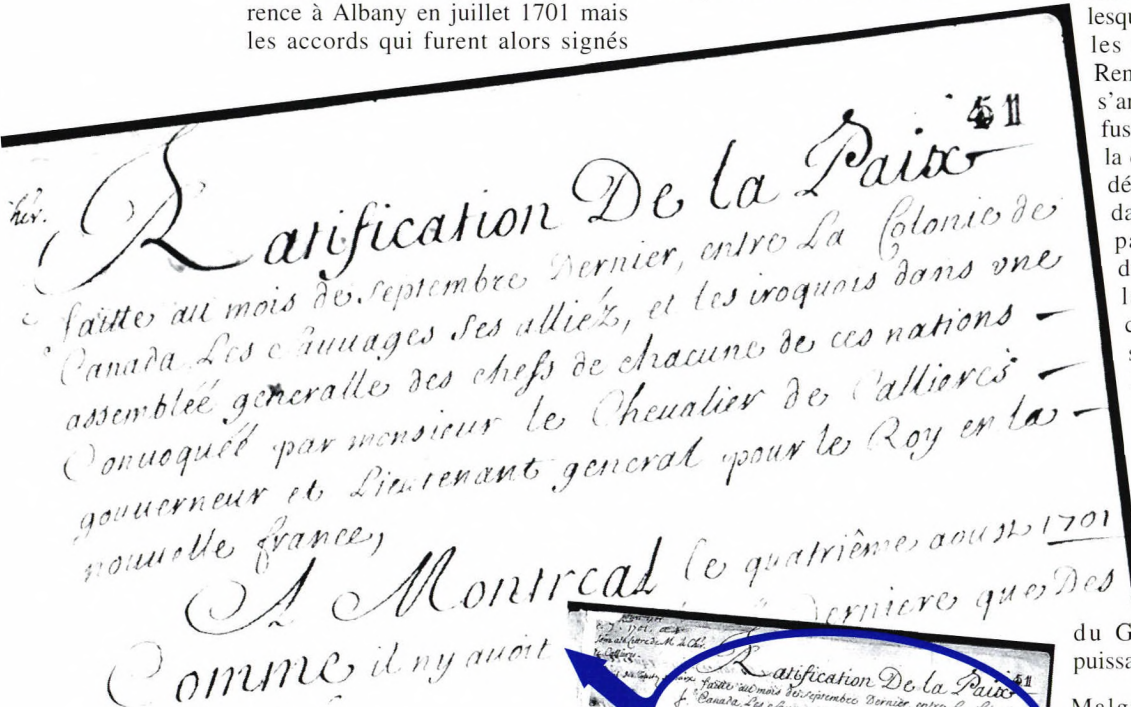 rence à Albany en juillet 1701 mais
les accords qui furent alors signés
51
Ratification De la Paix
faitte au mois de septembre Dernier, entre La Colonie de
Canada Les sauuages ses alliéz, et les iroquois dans vne
assembléé generalle des chefs de chacune de ces nations
Conuoquéé par monsieur le Cheualier de Callieres
gouuerneur et Lieutenant general pour le Roy en la
nouuelle france,
A Montreal le quatrième aoust 1701
Comme il ny auoit Derniere que Des
Ratification De la Paix 51
faitte au mois de septembre Dernier entre
Canada Les
lesqu
les
Ren
s'ar
fus
la
dé
da
pa
d
l
du G
puissa
Malg